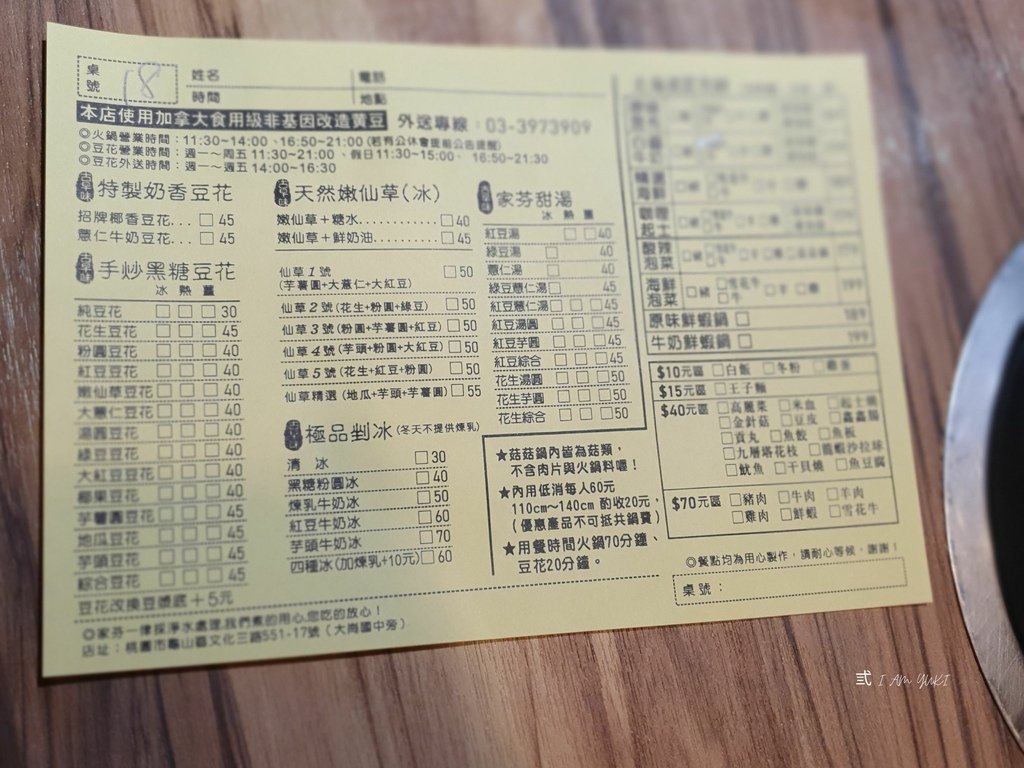 桌號 18
姓名 電話
時間 地點
本店使用加拿大食用級非基因改造黃豆 外送專線：03-3973909
◎火鍋營業時間：11:30~14:00、16:50~21:00(若有公休會提前公告提醒)
◎豆花營業時間：週一~周五11:30~21:00、假日11:30~15:00、16:50~21:30
◎豆花外送時間：週一~週五14:00~16:30
古早味 特製奶香豆花
招牌椰香豆花... □ 45
薏仁牛奶豆花... □ 45
古早味 手炒黑糖豆花
冰 熱 薑
純豆花 □ □ □ 30
花生豆花 □ □ □ 45
粉圓豆花 □ □ □ 40
紅豆豆花 □ □ □ 40
嫩仙草豆花 □ □ □ 40
大薏仁豆花 □ □ □ 40
湯圓豆花 □ □ □ 40
綠豆豆花 □ □ □ 40
大紅豆豆花 □ □ □ 40
椰果豆花 □ □ □ 40
芋薯圓豆花 □ □ □ 45
地瓜豆花 □ □ □ 45
芋頭豆花 □ □ □ 45
綜合豆花 □ □ □ 45
豆花改換豆漿底+5元
古早味 天然嫩仙草(冰)
嫩仙草+糖水............ □ 40
嫩仙草+鮮奶油......... □ 45
仙草1號 □ 50
(芋薯圓+大薏仁+大紅豆)
仙草2號(花生+粉圓+綠豆) □ 50
仙草3號(粉圓+芋薯圓+紅豆) □ 50
仙草4號(芋頭+粉圓+大紅豆) □ 50
仙草5號(花生+紅豆+粉圓) □ 50
仙草精選(地瓜+芋頭+芋薯圓) □ 55
古早味 極品剉冰(冬天不提供煉乳)
清 冰 □ 30
黑糖粉圓冰 □ 40
煉乳牛奶冰 □ 50
紅豆牛奶冰 □ 60
芋頭牛奶冰 □ 70
四種冰(加煉乳+10元) □ 60
古早味 家芬甜湯
冰 熱 薑
紅豆湯 □ □ 40
綠豆湯 □ 40
薏仁湯 □ 40
綠豆薏仁湯 □ 40
紅豆薏仁湯 □ □ □ 40
紅豆湯圓 □ □ □ 40
紅豆芋圓 □ □ □ 45
紅豆綜合 □ □ □ 45
花生湯圓 □ □ □ 50
花生芋圓 □ □ □ 50
花生綜合 □ □ □ 50
★菇菇鍋內皆為菇類，
不含肉片與火鍋料喔！
★內用低消每人60元
110cm~140cm 酌收20元，
(優惠產品不可抵共鍋費)
★用餐時間火鍋70分鐘、
豆花20分鐘。
咖哩
起士
酸辣
泡菜
海鮮
泡菜 □豬 □雪花牛 199
原味鮮蝦鍋 □ 189
牛奶鮮蝦鍋 □ 199
$10元區 □白飯 □冬粉 □雞蛋
$15元區 □王子麵
$40元區 □高麗菜 □米血 □起士腸
□金針菇 □豆皮 □鑫鑫腸
□貢丸 □魚餃 □魚板
□九層塔花枝 □龍蝦沙拉球
□魷魚 □干貝燒 □魚豆腐
$70元區 □豬肉 □牛肉 □羊肉
□雞肉 □鮮蝦 □雪花牛
◎餐點均為用心製作，請耐心等候，謝謝！
桌號：
◎家芬一律採淨水處理,我們煮的用心,您吃的放心！
店址：桃園市龜山區文化三路551-17號（大崗國中旁）
貳 I AM YUKI